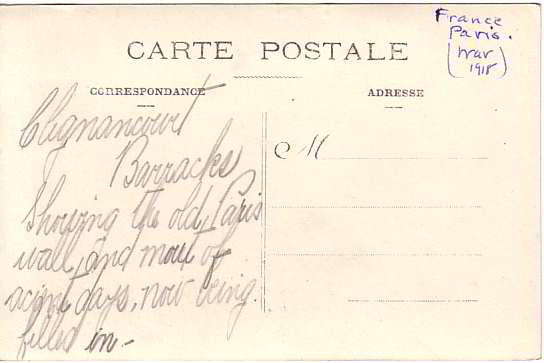 France
Paris.
(War
1918)
CARTE POSTALE
CORRESPONDANCE
ADRESSE
M
Clignancourt
Barracks
Showing the old Paris
wall, and mout of
acient days, now being
filled in.-